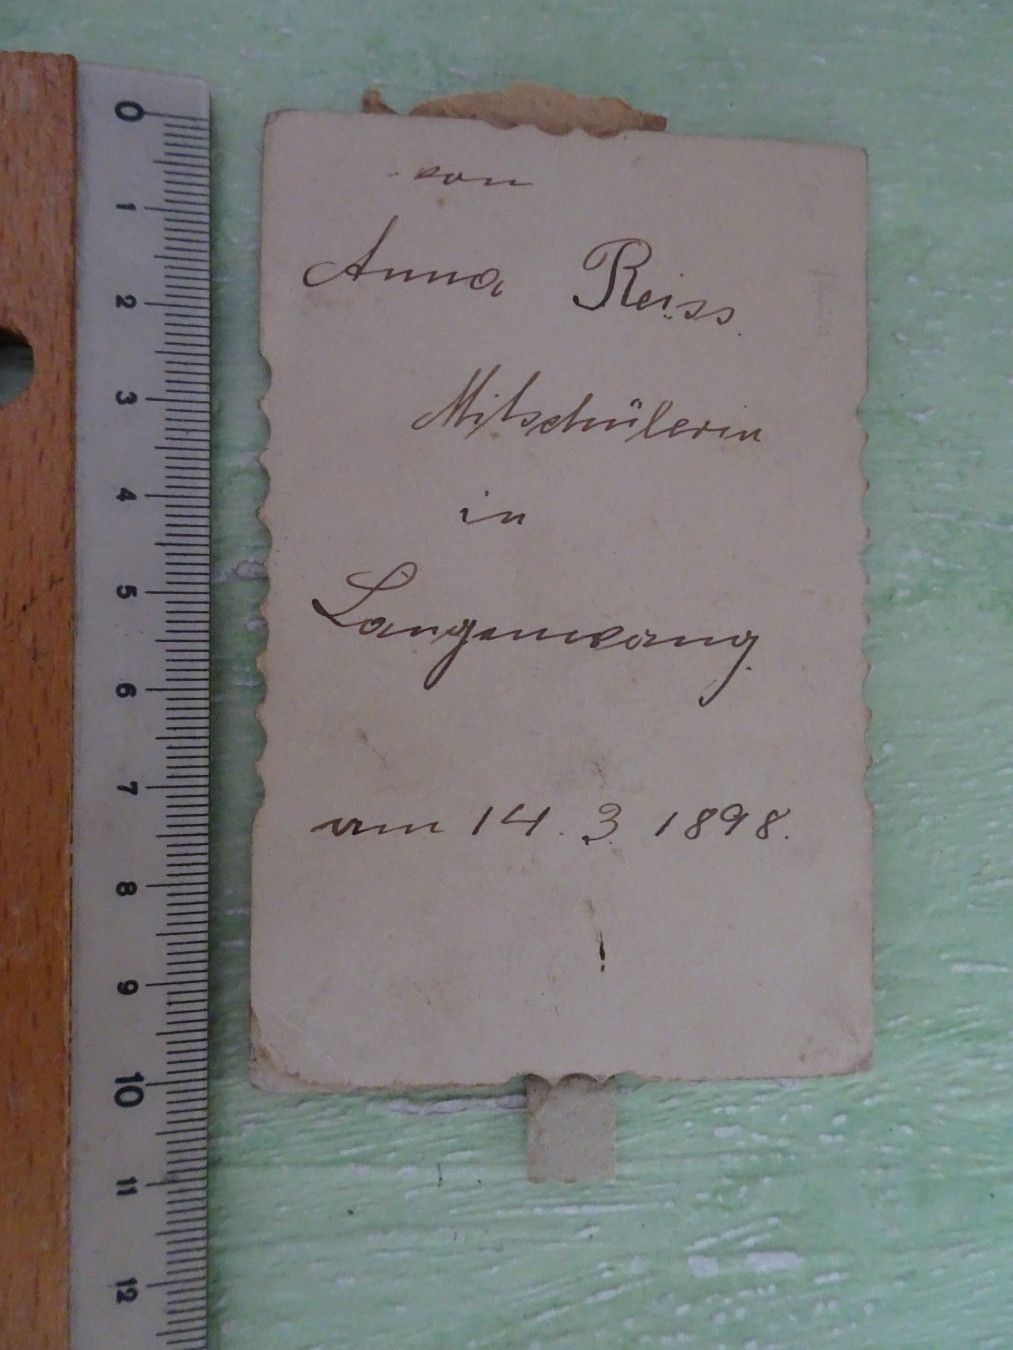 von
Anna Reiss.
Mitschülerin
in
Langenwang.
am 14. 3. 1898.
0
1
2
3
4
5
6
7
8
9
10
11
12